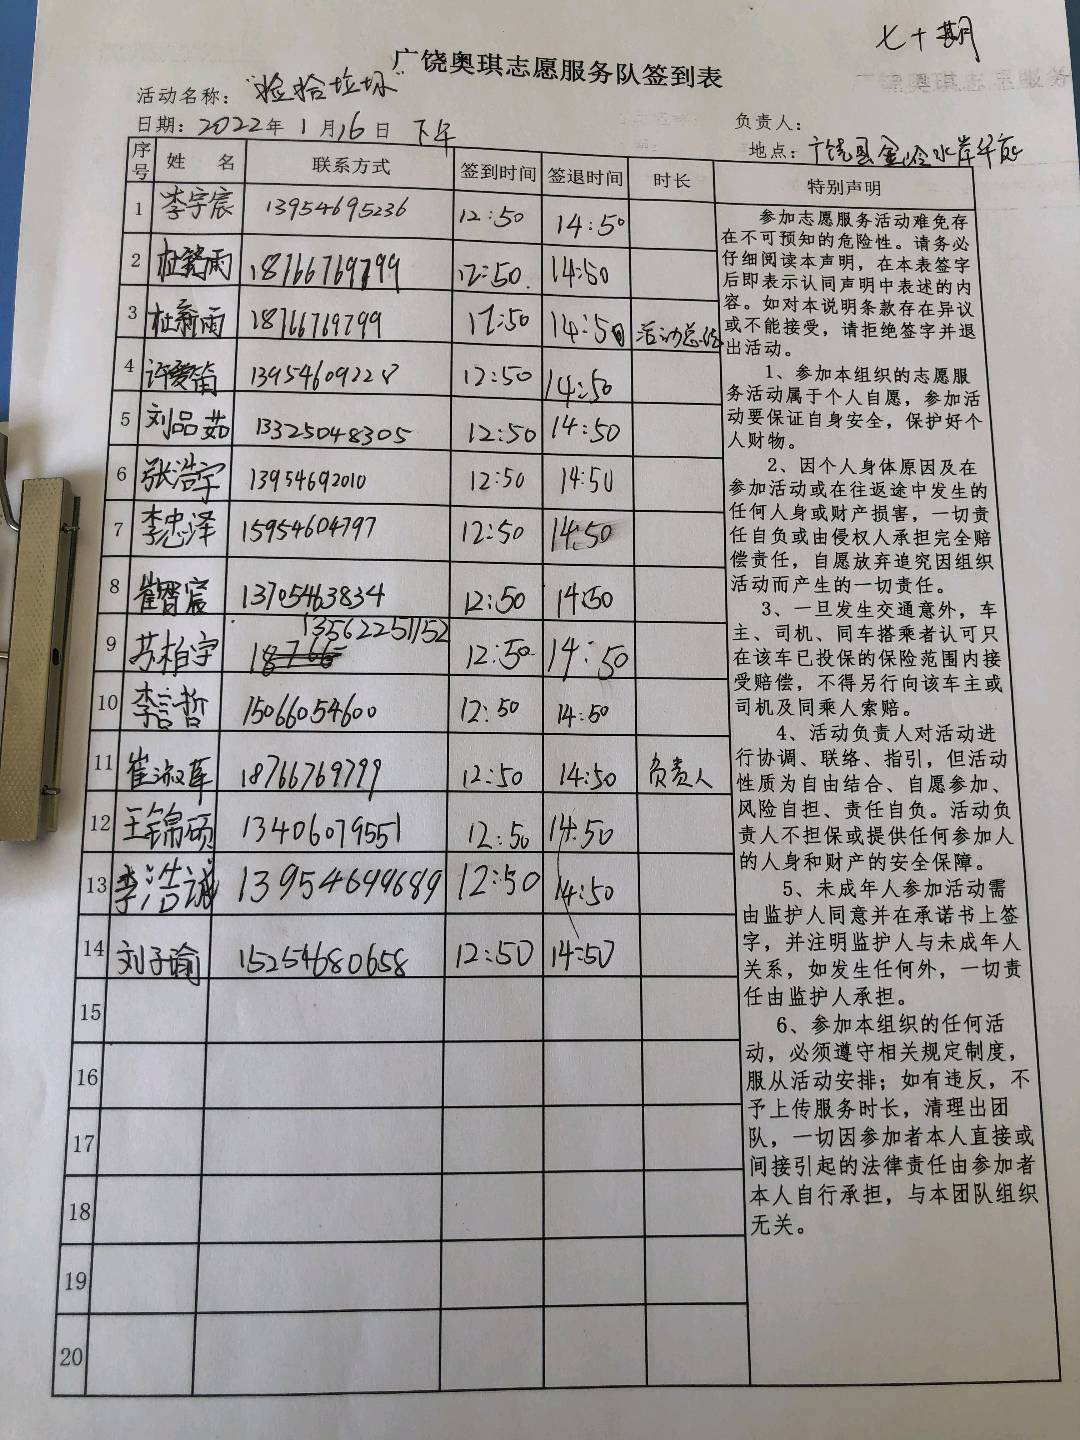 七十期
广饶奥琪志愿服务队签到表
活动名称：“捡拾垃圾”
日期：2022年 1月16日 下午
负责人：
地点：广饶县
序号 姓 名 联系方式 签到时间 签退时间 时长 特别声明
1 李宇宸 13954695236 12:50 14:50
2 18766769799 12:50 14:50
3 杜新雨 18766769799 12:50 14:50 活动总结
4 许爱笛 13954609228 12:50 14:50
5 刘品茹 13325048305 12:50 14:50
6 张浩宇 13954692010 12:50 14:50
7 李忠泽 15954604797 12:50 14:50
8 13705463834 12:50 14:50
9 苏柏宇 13562251152 12:50 14:50
10 李言哲 15066054600 12:50 14:50
11 18766769799 12:50 14:50 负责人
12 王锦硕 13406079551 12:50 14:50
13 李浩诚 13954699689 12:50 14:50
14 刘子瑜 15254680658 12:50 14:50
15
16
17
18
19
20
参加志愿服务活动难免存
在不可预知的危险性。请务必
仔细阅读本声明，在本表签字
后即表示认同声明中表述的内
容。如对本说明条款存在异议
或不能接受，请拒绝签字并退
出活动。
1、参加本组织的志愿服
务活动属于个人自愿，参加活
动要保证自身安全，保护好个
人财物。
2、因个人身体原因及在
参加活动或在往返途中发生的
任何人身或财产损害，一切责
任自负或由侵权人承担完全赔
偿责任，自愿放弃追究因组织
活动而产生的一切责任。
3、一旦发生交通意外，车
主、司机、同车搭乘者认可只
在该车已投保的保险范围内接
受赔偿，不得另行向该车主或
司机及同乘人索赔。
4、活动负责人对活动进
行协调、联络、指引，但活动
性质为自由结合、自愿参加、
风险自担、责任自负。活动负
责人不担保或提供任何参加人
的人身和财产的安全保障。
5、未成年人参加活动需
由监护人同意并在承诺书上签
字，并注明监护人与未成年人
关系，如发生任何外，一切责
任由监护人承担。
6、参加本组织的任何活
动，必须遵守相关规定制度，
服从活动安排；如有违反，不
予上传服务时长，清理出团
队，一切因参加者本人直接或
间接引起的法律责任由参加者
本人自行承担，与本团队组织
无关。